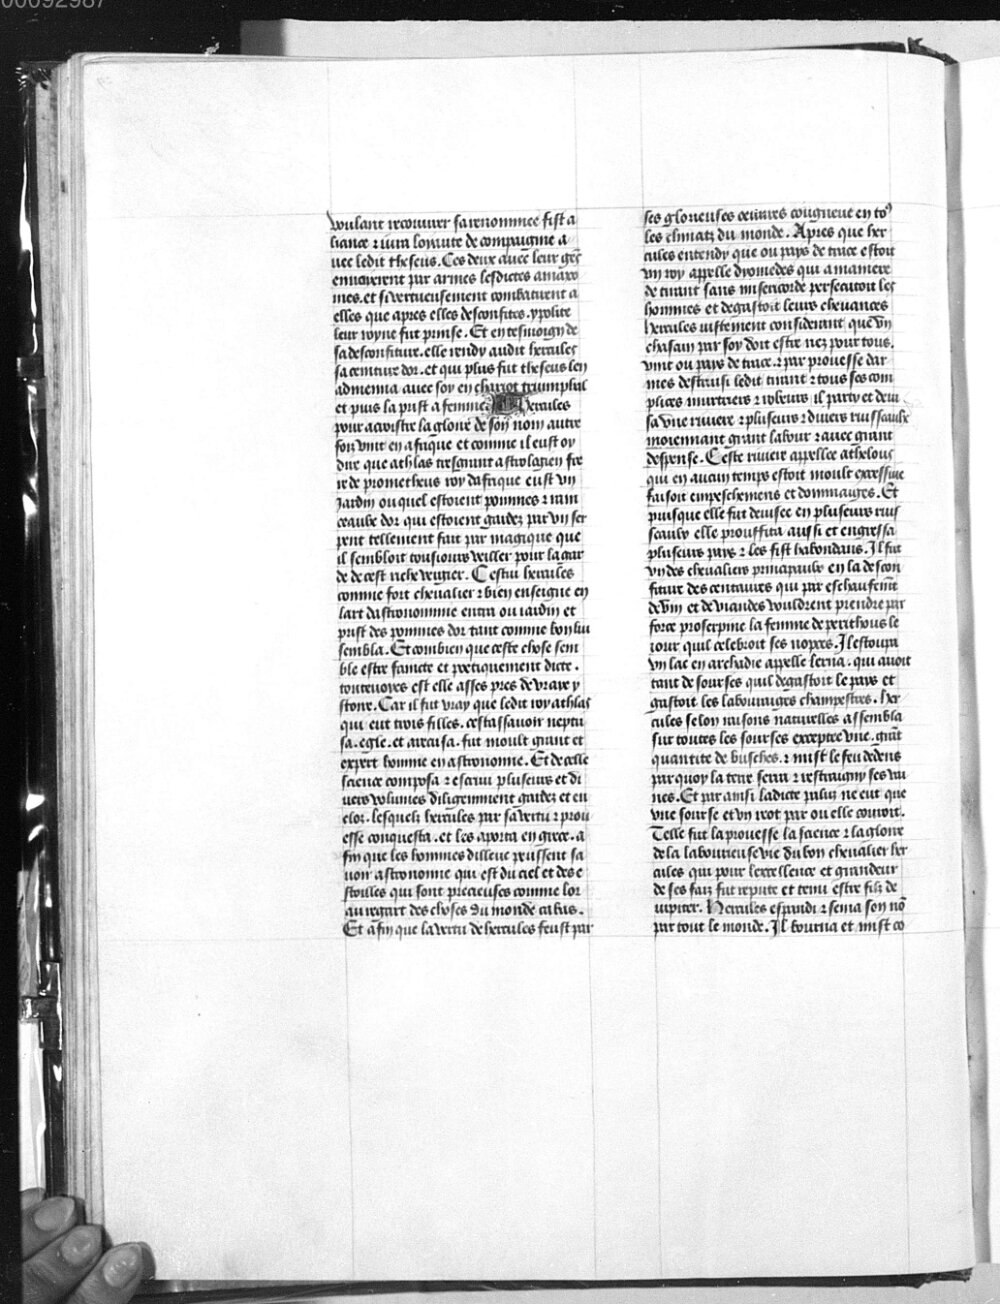 00092987
voulant recouurer sa renommee fist a
liance ⁊ iura loyaute de compaignie a
uec ledit theseus. Ces deux auec leur gēs
enuaierent par armes lesdictes amazo
nes. et si vertueusement combatirent a
elles que apres elles desconfites. ypolite
leur royne fut prinse. Et en tesmoing de
sa desconfiture. elle rendy audit hercules
sa ceinture dor. et qui plus fut theseus len
admenna auec soy en chariot triumphal
et puis la prist a femme. Hercules
pour acroistre la gloire de son nom autre
foiz vint en afrique et comme il eust oy
dire que athlas tresgrant astrologien fre
re de prometheus roy dafrique eust vn
Jardin ou quel estoient pommes ⁊ rain
ceaulx dor qui estoient gardez par vn ser
pent tellement fait par magique que
il sembloit tousiours veiller pour la gar
de de cest riche vergier. Cestui hercules
comme fort cheualier ⁊ bien enseigne en
lart dastronomie entra ou iardin et
prist des pommes dor tant comme bon lui
sembla. Et combien que ceste chose sem
ble estre faincte et poetiquement dicte.
toutenoyes est elle asses pres de vraye y
stoire. Car il fut vray que ledit roy athlas
qui eut trois filles. cestassauoir neptu
sa. egle. et arecusa. fut moult grant et
expert homme en astronomie. Et de celle
science composa ⁊ escriui plusieurs et di
uers volumes diligemment gardez et en
cloz. lesquelz hercules par sa vertu ⁊ prou
esse conquesta. et les aporta en grece. a
fin que les hommes dillenc peussent sa
uoir astronomie qui est du ciel et des e
stoilles qui sont precieuses comme lor
au regart des choses du monde cabas.
Et afin que la vertu de hercules feust par
ses glorieuses oeuures congneue en to9
les climatz du monde. Apres que her
cules entendy que ou pays de trace estoit
vn roy appelle dyomedes qui a maniere
de tirant sans misericorde persecutoit les
hommes et degastoit leurs cheuances
hercules iustement considerant que vn
chascun par soy doit estre nez pour tous.
vint ou pays de trace. ⁊ par prouesse dar
mes destruisi ledit tirant ⁊ tous ses com
plices murtriers ⁊ robeurs il party et deui
sa vne riuiere ⁊ plusieurs ⁊ diuers ruisseaulx
moiennant grant labour ⁊ auec grant
despense. Ceste riuiere appellee athelous
qui en aucun temps estoit moult excessiue
faisoit empeschemens et dommaiges. Et
puisque elle fut deuisee en plusieurs ruis
seaulx elle prouffita aussi et engressa
plusieurs pays ⁊ les fist habondans. Il fut
vn des cheualiers principaulx en la descon
fiture des centaures qui par eschaufemēt
de vin et de viandes vouldrent prendre par
force proserpine la femme de perithous le
iour quil celebroit ses nopces. Il estoupa
vn lac en archadie appelle lerna. qui auoit
tant de sourses quil degastoit le pays et
gastoit les labourages champestres. her
cules selon raisons naturelles assembla
sur toutes les sourses excepte vne. grāt
quantite de busches. ⁊ mist le feu dedens
par quoy la terre serra ⁊ restraigny ses vai
nes. Et par ainsi ladicte paluz ne eut que
vne sourse et vn ruot par ou elle couroit.
Telle fut la prouesse la science ⁊ la gloire
de la laborieuse vie du bon cheualier her
cules qui pour lexcellence et grandeur
de ses faiz fut repute et tenu estre filz de
iupiter. Hercules espandi ⁊ sema son nō
par tout le monde. Il tourna et mist co